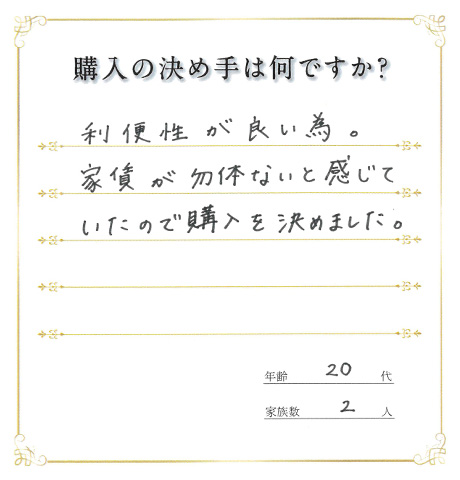 購入の決め手は何ですか?
利便性が良い為。
家賃が勿体ないと感じて
いたので購入を決めました。
年齢 20 代
家族数 2 人